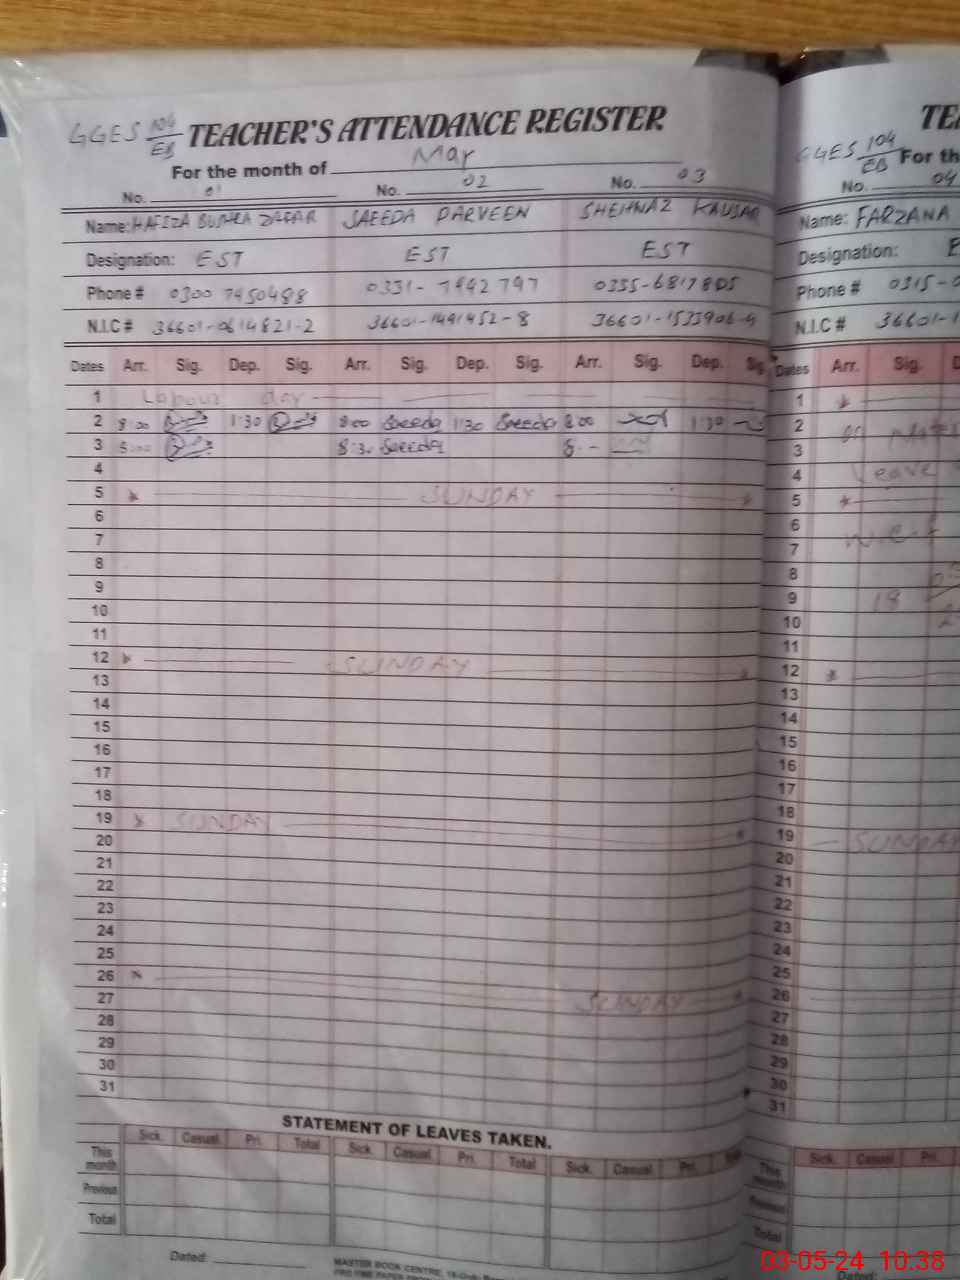 GGES 104/EB TEACHER'S ATTENDANCE REGISTER
For the month of May
No. 01 No. 02 No. 03
Name: HAFIZA BUSHRA ZAFAR SAEEDA PARVEEN SHEHNAZ KAUSAR
Designation: EST EST EST
Phone # 0300 7450488 0331- 7442797 0335-6817805
N.I.C # 36601-0614821-2 36601-1491452-8 36601-1533906-4
Dates Arr. Sig. Dep. Sig. Arr. Sig. Dep. Sig. Arr. Sig. Dep. Sig.
1 Labour day
2 8:00 1:30 8:00 Saeeda 1:30 Saeeda 8:00 1:30
3 8:00 8:30 Saeeda 8.-
4
5 SUNDAY
6
7
8
9
10
11
12 SUNDAY
13
14
15
16
17
18
19 SUNDAY
20
21
22
23
24
25
26 SUNDAY
27
28
29
30
31
STATEMENT OF LEAVES TAKEN.
Sick. Casual Pri. Total Sick. Casual Pri. Total Sick. Casual Pri.
This month
Previous
Total
Dated:
MASTER BOOK CENTRE,
GGES 104/EB For th
No. 04
Name: FARZANA
Designation: E
Phone # 0315-0
N.I.C # 36601-1
Dates Arr. Sig. D
1
2 on
3
4 Leave
5
6 w.e.f
7
8
9 18
10
11
12
13
14
15
16
17
18
19 SUNDAY
20
21
22
23
24
25
26
27
28
29
30
31
Sick. Casual Pri.
This month
Previous
Total
Dated:
03-05-24 10:38